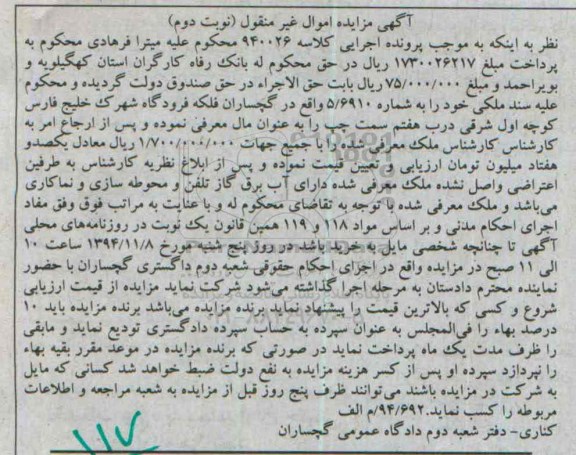 آگهی مزایده اموال غیر منقول (نوبت دوم)
نظر به اینکه به موجب پرونده اجرایی کلاسه ۹۴۰۰۲۶ محکوم علیه میترا فرهادی محکوم به
پرداخت مبلغ ۱۷۳۰۰۲۶۲۱۷ ریال در حق محکوم له بانک رفاه کارگران استان کهگیلویه و
بویراحمد و مبلغ ۷۵/۰۰۰/۰۰۰ ریال بابت حق الاجراء در حق صندوق دولت گردیده و محکوم
علیه سند ملکی خود را به شماره ۵/۶۹۱۰ واقع در گچساران فلکه فرودگاه شهرک خلیج فارس
کوچه اول شرقی درب هفتم سمت چپ را به عنوان مال معرفی نموده و پس از ارجاع امر به
کارشناس کارشناس ملک معرفی شده را با جمیع جهات ۱/۷۰۰/۰۰۰/۰۰۰ ریال معادل یکصدو
هفتاد میلیون تومان ارزیابی و تعیین قیمت نموده و پس از ابلاغ نظریه کارشناس به طرفین
اعتراضی واصل نشده ملک معرفی شده دارای آب برق گاز تلفن و محوطه سازی و نماکاری
می‌باشد و ملک معرفی شده با توجه به تقاضای محکوم له و با عنایت به مراتب فوق وفق مفاد
اجرای احکام مدنی و بر اساس مواد ۱۱۸ و ۱۱۹ همین قانون یک نوبت در روزنامه‌های محلی
آگهی تا چنانچه شخصی مایل به خرید باشد در روز پنج شنبه مورخ ۱۳۹۴/۱۱/۸ ساعت ۱۰
الی ۱۱ صبح در مزایده واقع در اجرای احکام حقوقی شعبه دوم داگستری گچساران با حضور
نماینده محترم دادستان به مرحله اجرا گذاشته می‌شود شرکت نماید مزایده از قیمت ارزیابی
شروع و کسی که بالاترین قیمت را پیشنهاد نماید برنده مزایده می‌باشد برنده مزایده باید ۱۰
درصد بهاء را فی‌المجلس به عنوان سپرده به حساب سپرده دادگستری تودیع نماید و مابقی
را ظرف مدت یک ماه پرداخت نماید در صورتی که برنده مزایده در موعد مقرر بقیه بهاء
را نپردازد سپرده او پس از کسر هزینه مزایده به نفع دولت ضبط خواهد شد کسانی که مایل
به شرکت در مزایده باشند می‌توانند ظرف پنج روز قبل از مزایده به شعبه مراجعه و اطلاعات
مربوطه را کسب نماید.۹۴/۶۹۲/م الف
کناری- دفتر شعبه دوم دادگاه عمومی گچساران
۱۱۷